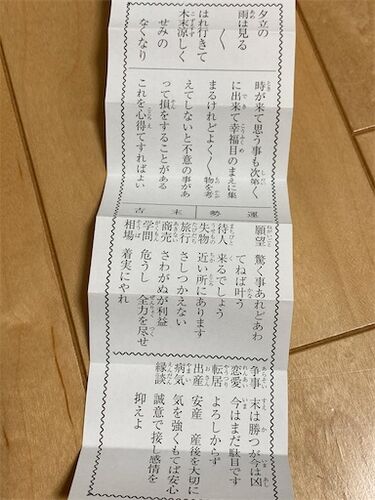 夕立の
雨は見る
〱
はれ行きて
木末涼しく
せみの
なくなり
時が来て思う事も次第〱
に出来て幸福目のまえに集
まるけれどよく〱物を考
えてしないと不意の事があ
って損をすることがある
これを心得てすればよい
運勢末吉
願望 驚く事あれどあわ
てねば叶う
待人 来るでしょう
失物 近い所にあります
旅行 さしつかえない
商売 さわがぬが利益
学問 危うし 全力を尽せ
相場 着実にやれ
争事 末は勝つが今は凶
恋愛 今はまだ駄目です
転居 よろしからず
出産 安産 産後を大切に
病気 気を強くもてば安心
縁談 誠意で接し感情を
抑えよ